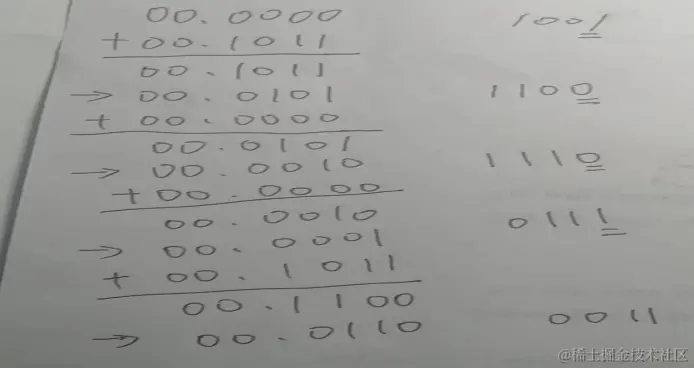 00.0000 1001
+ 00.1011
00.1011
→ 00.0101 1100
+ 00.0000
00.0101
→ 00.0010 1110
+ 00.0000
00.0010 0111
→ 00.0001
+ 00.1011
00.1100
→ 00.0110 0011
@稀土掘金技术社区